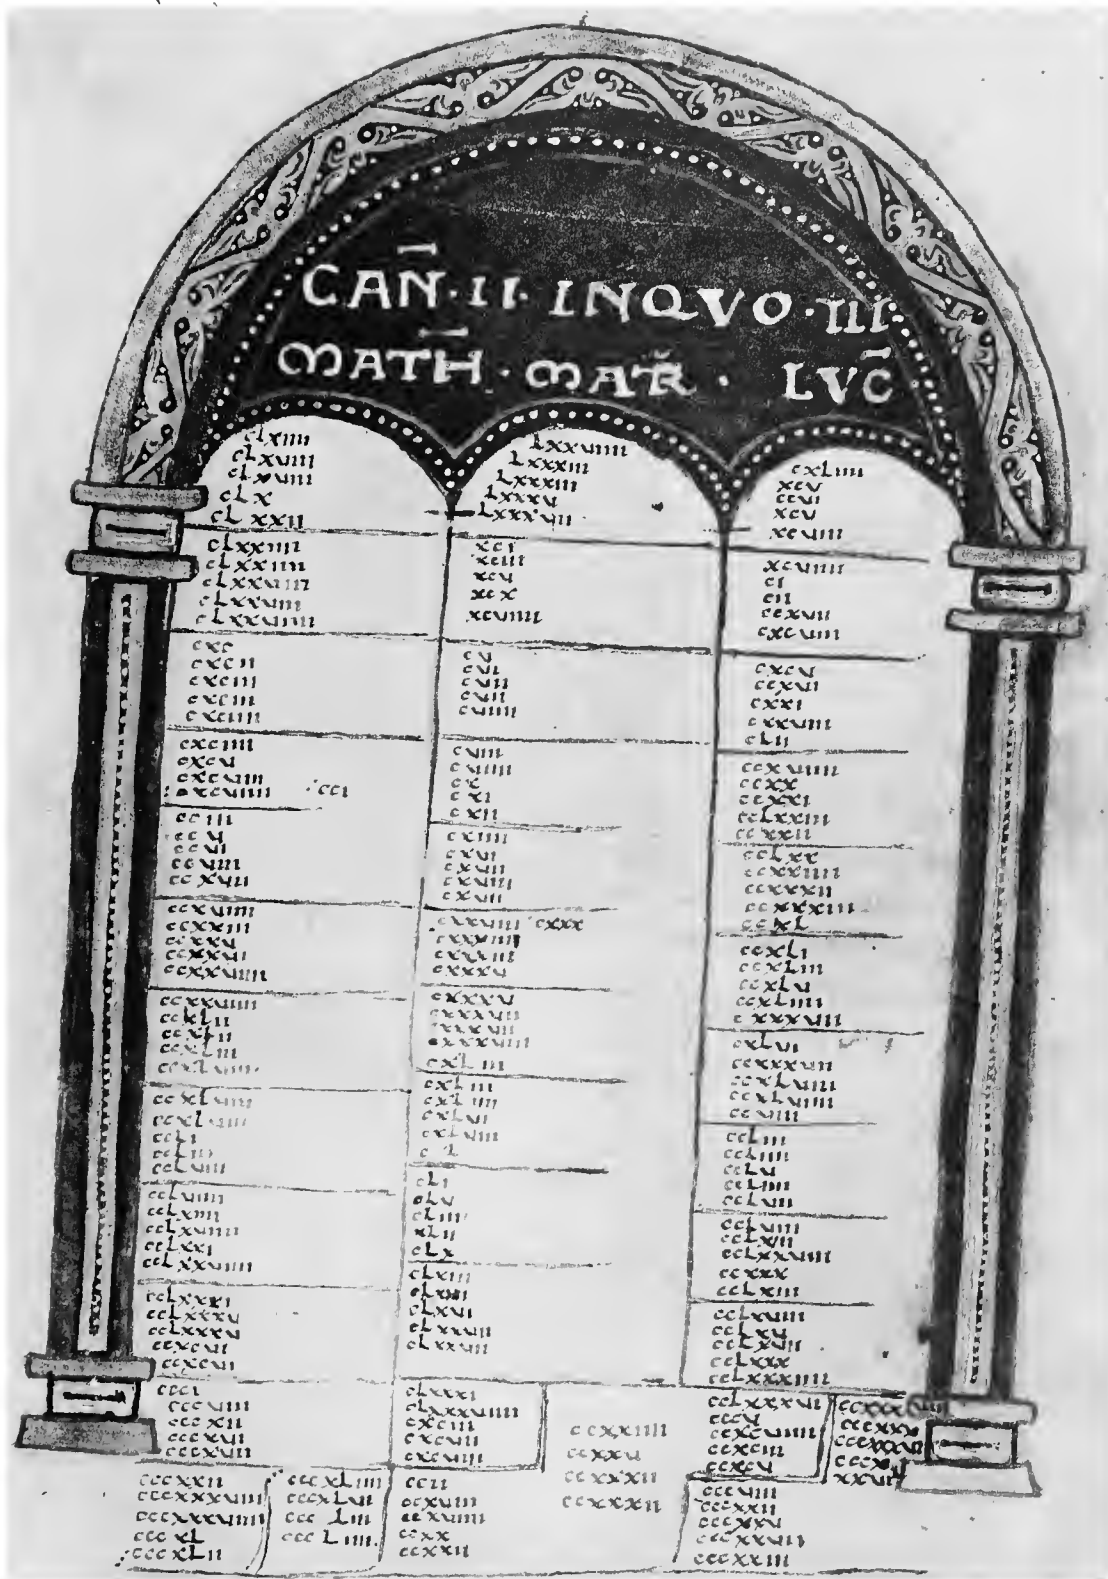 CAN̄·II·INQVO·III
MATH̄·MAR̄·LVC̄
cLxiiii
cLxuiiii
cLxuiiii
cLx
cLxxii
cLxxiiii
cLxxiiii
cLxxuiiii
cLxxuiiii
cLxxuiiii
cxc
cxcii
cxciii
cxciii
cxciiii
cxciiii
cxcu
cxcuiii
cxcuiiii cci
cciii
ccu
ccui
ccuiiii
ccxuii
ccxuiiii
ccxxiii
ccxxu
ccxxui
ccxxuiiii
ccxxuiiii
ccxLii
ccxLii
ccxLiii
ccxLuiiii
ccxLuiiii
ccLi
ccLuiii
ccLuiiii
ccLxiiii
ccLxuiiii
ccLxxi
ccLxxuiiii
ccLxxxi
ccLxxxu
ccLxxxu
ccxcui
ccxcui
ccci
cccuiiii
cccxii
cccxui
cccxuii
cccxxii
cccxxxuiiii
cccxxxuiiii
cccxL
cccxLii
cccxLiiii
cccxLui
ccc Lii
ccc Liiii
Lxxuiiii
Lxxxiii
Lxxxiii
Lxxxu
Lxxxuii
xci
xciii
xcu
xcx
xcuiiii
cu
cui
cuii
cuii
cuiiii
cuiii
cuiiii
cx
cxi
cxii
cxiiii
cxui
cxuii
cxuiii
cxuii
cxxuiiii cxxx
cxxxiiii
cxxxiii
cxxxu
cxxxu
cxxxuii
cxxxuiiii
cxLiii
cxLiii
cxLiiii
cxLui
cxLuiii
c L
cLi
cLu
cLiii
xLii
cLx
cLxiii
cLxiii
cLxxui
cLxxuiii
cLxxuiii
cLxxxi
cLxxxuiiii
cxciii
cxcuii
cxcuiii
ccii
ccxuiii
ccxuiiii
ccxx
ccxxii
ccxxiiii
ccxxu
ccxxxii
ccxxxii
cxLiiii
xcu
ccui
xcu
xcuiii
xcuiiii
ci
cii
ccxuii
cxcuiii
cxcu
ccxui
cxxi
cxxuiiii
cLii
ccxuiiii
ccxx
ccxxi
ccLxxiii
ccxxii
ccLxx
ccxxiiiii
ccxxxii
ccxxxiii
ccxL
ccxLi
ccxLiii
ccxLu
ccxLiiii
cxxxuiii
cxLui
ccxxxuiii
ccxLuiii
ccxLuiiii
ccuiiii
ccLiii
ccLiiii
ccLu
ccLiiii
ccLuii
ccLuiii
ccLxiii
ccLxxuiiii
ccxxx
ccLxiii
ccLxuiii
ccLxu
ccLxuii
ccLxxx
ccLxxxiiii
ccLxxxui
cccu
ccxcuiiii
ccxciii
ccxcu
cccuiii
cccxxii
cccxxu
cccxxuii
cccxxiii